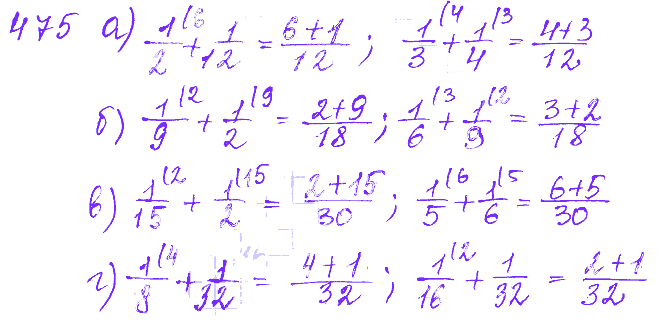 475 а) 1/2^(6 + 1/12 = (6+1)/12 ; 1/3^(4 + 1/4^(3 = (4+3)/12
б) 1/9^(2 + 1/2^(9 = (2+9)/18 ; 1/6^(3 + 1/9^(2 = (3+2)/18
в) 1/15^(2 + 1/2^(15 = (2+15)/30 ; 1/5^(6 + 1/6^(5 = (6+5)/30
г) 1/8^(4 + 1/32 = (4+1)/32 ; 1/16^(2 + 1/32 = (2+1)/32